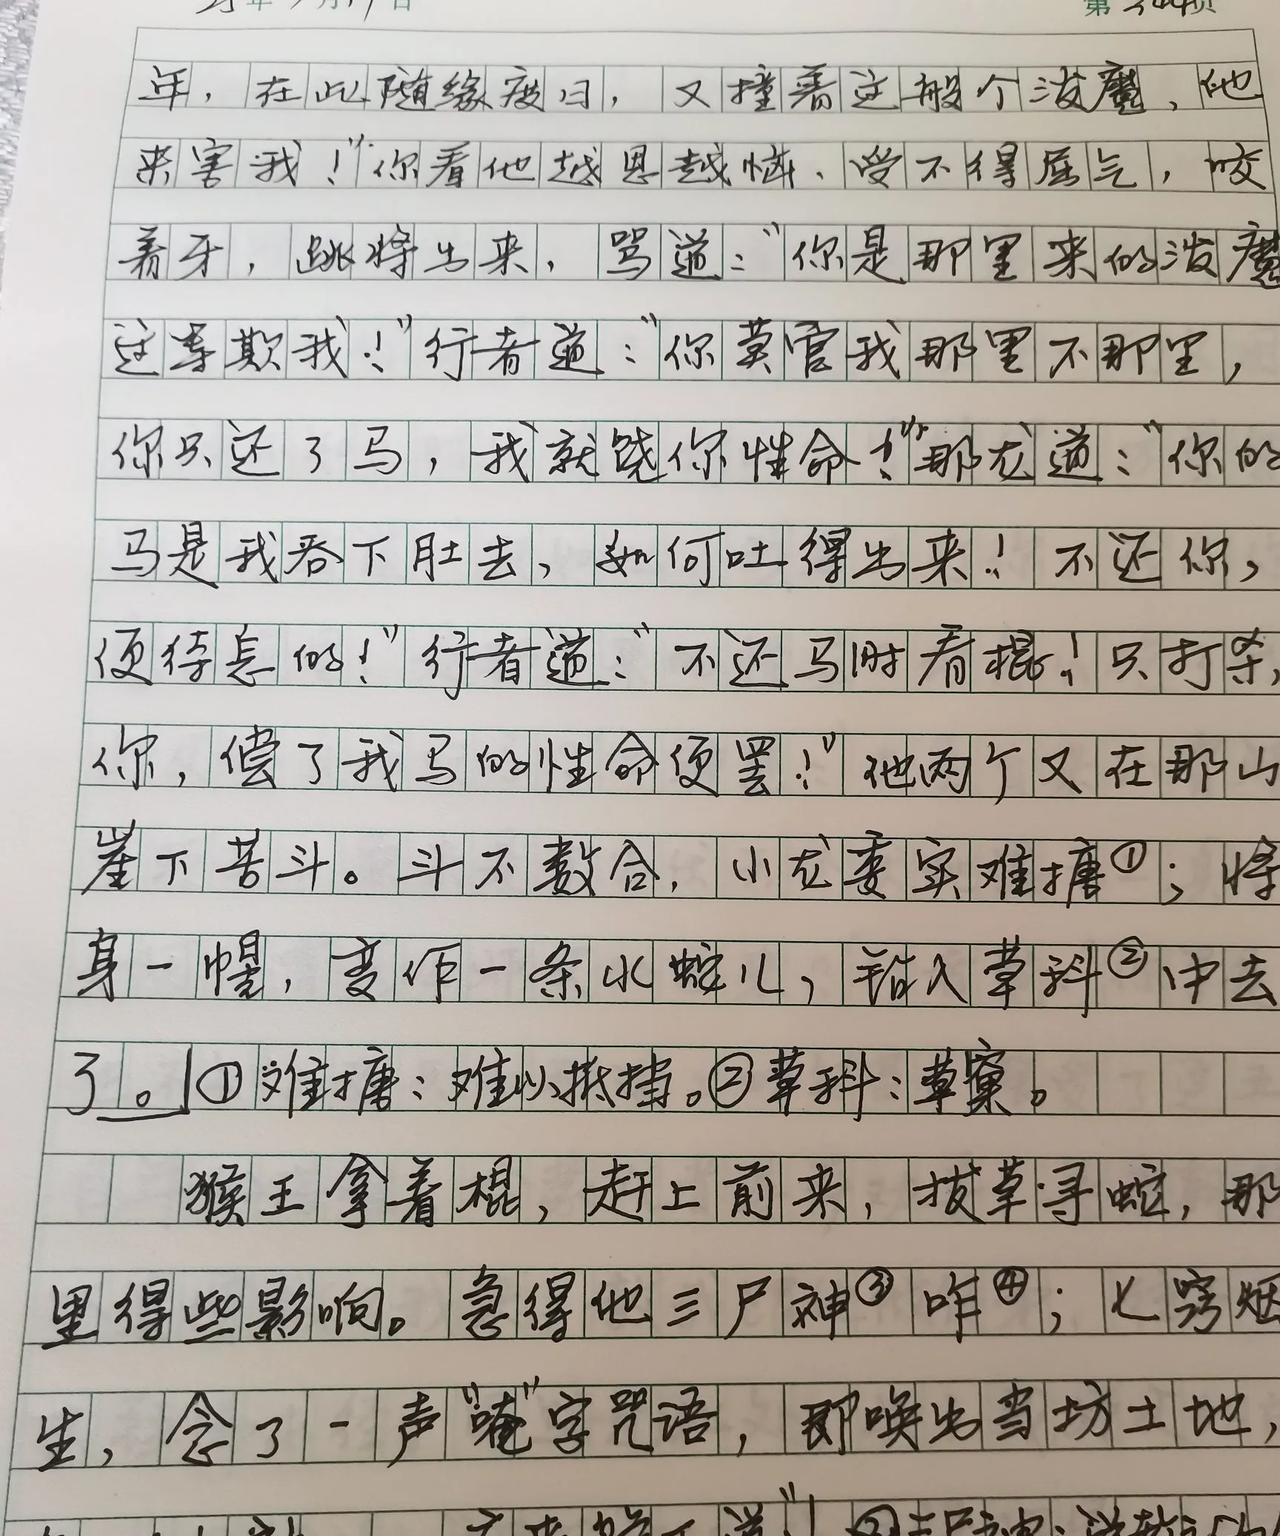 年，在此随缘度日，又撞着这般个泼魔，他
来害我！”你看他越思越恼，受不得屈气，咬
着牙，跳将出来，骂道：“你是那里来的泼魔
这等欺我！”行者道：“你莫管我那里不那里，
你只还了马，我就饶你性命！”那龙道：“你的
马是我吞下肚去，如何吐得出来！不还你，
便待怎的！”行者道：“不还马时看棍！只打杀
你，偿了我马的性命便罢！”他两个又在那山
崖下苦斗。斗不数合，小龙委实难搪①；将
身一幌，变作一条水蛇儿，钻入草科②中去
了。①难搪：难以抵挡。②草科：草窠。
猴王拿着棍，赶上前来，拔草寻蛇，那
里得些影响。急得他三尸神③咋④；七窍烟
生，念了一声“唵”字咒语，即唤出当坊土地，